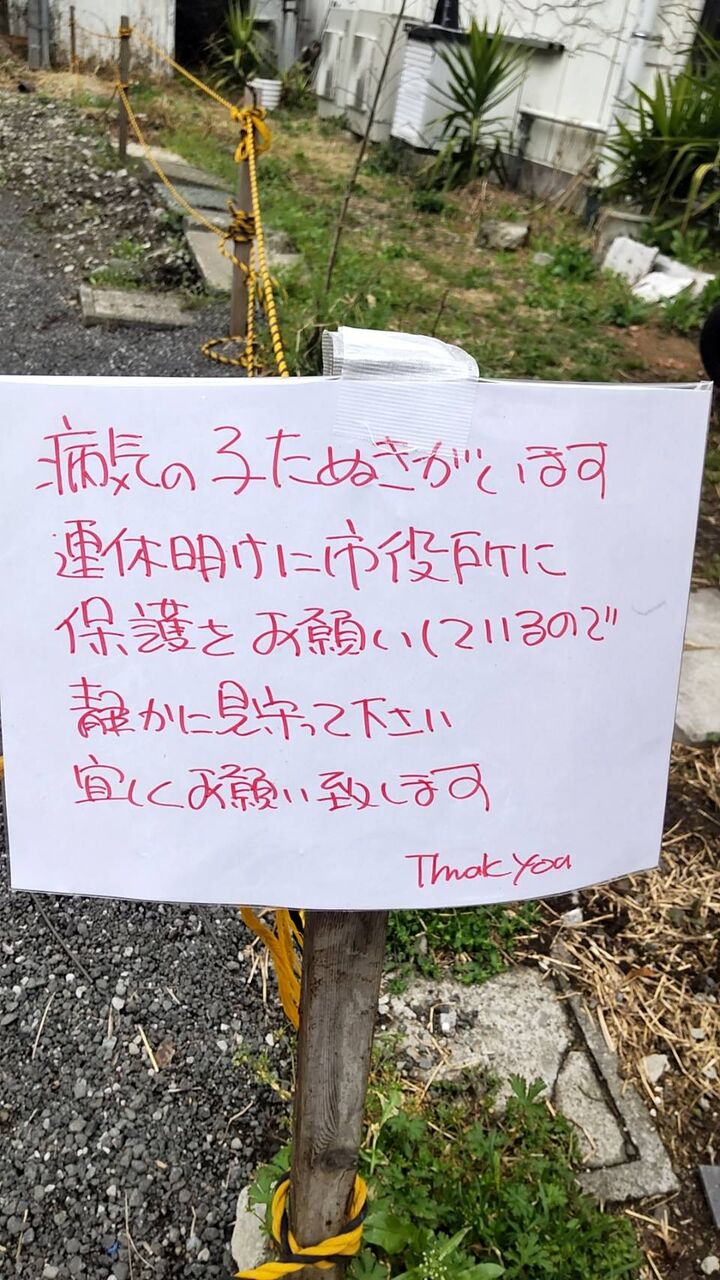 病気の子たぬきがいます
連休明けに市役所に
保護をお願いしているので
静かに見守って下さい
宜しくお願い致します
Thnak You